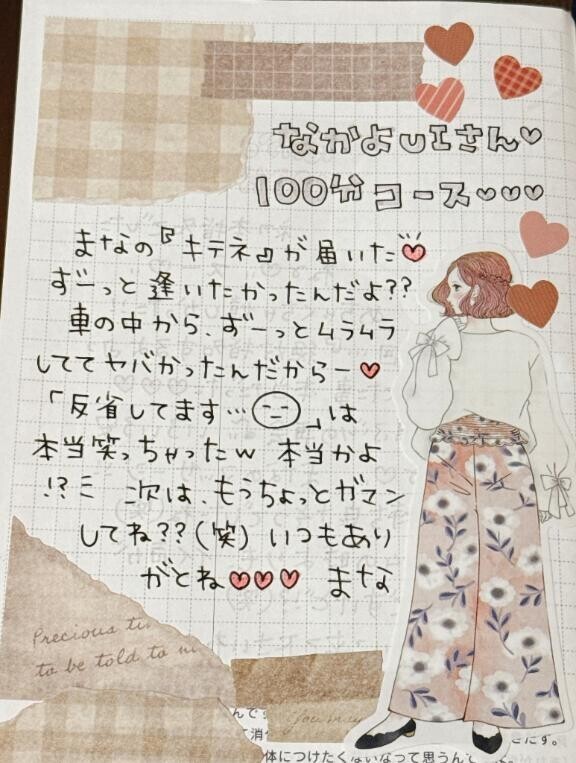 なかよしIさん♡
100分コース♡♡♡
まなの『キテネ』が届いた♡
ずーっと逢いたかったんだよ??
車の中から、ずーっとムラムラ
しててヤバかったんだからー♡
「反省してます…」は
本当笑っちゃったw 本当かよ
!? 次は、もうちょっとガマン
してね??(笑) いつもあり
がとね♡♡♡ まな
Precious ti
to be told to m
journey
んで
て消
体につけたくないなって思うんで